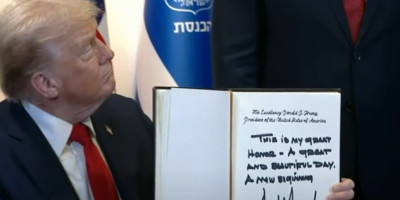 ישראל
הכנסת
His Excellency Donald J. Trump,
President of the United States of America
THIS IS MY GREAT
HONOR - A GREAT
AND BEAUTIFUL DAY.
A NEW BEGINNING